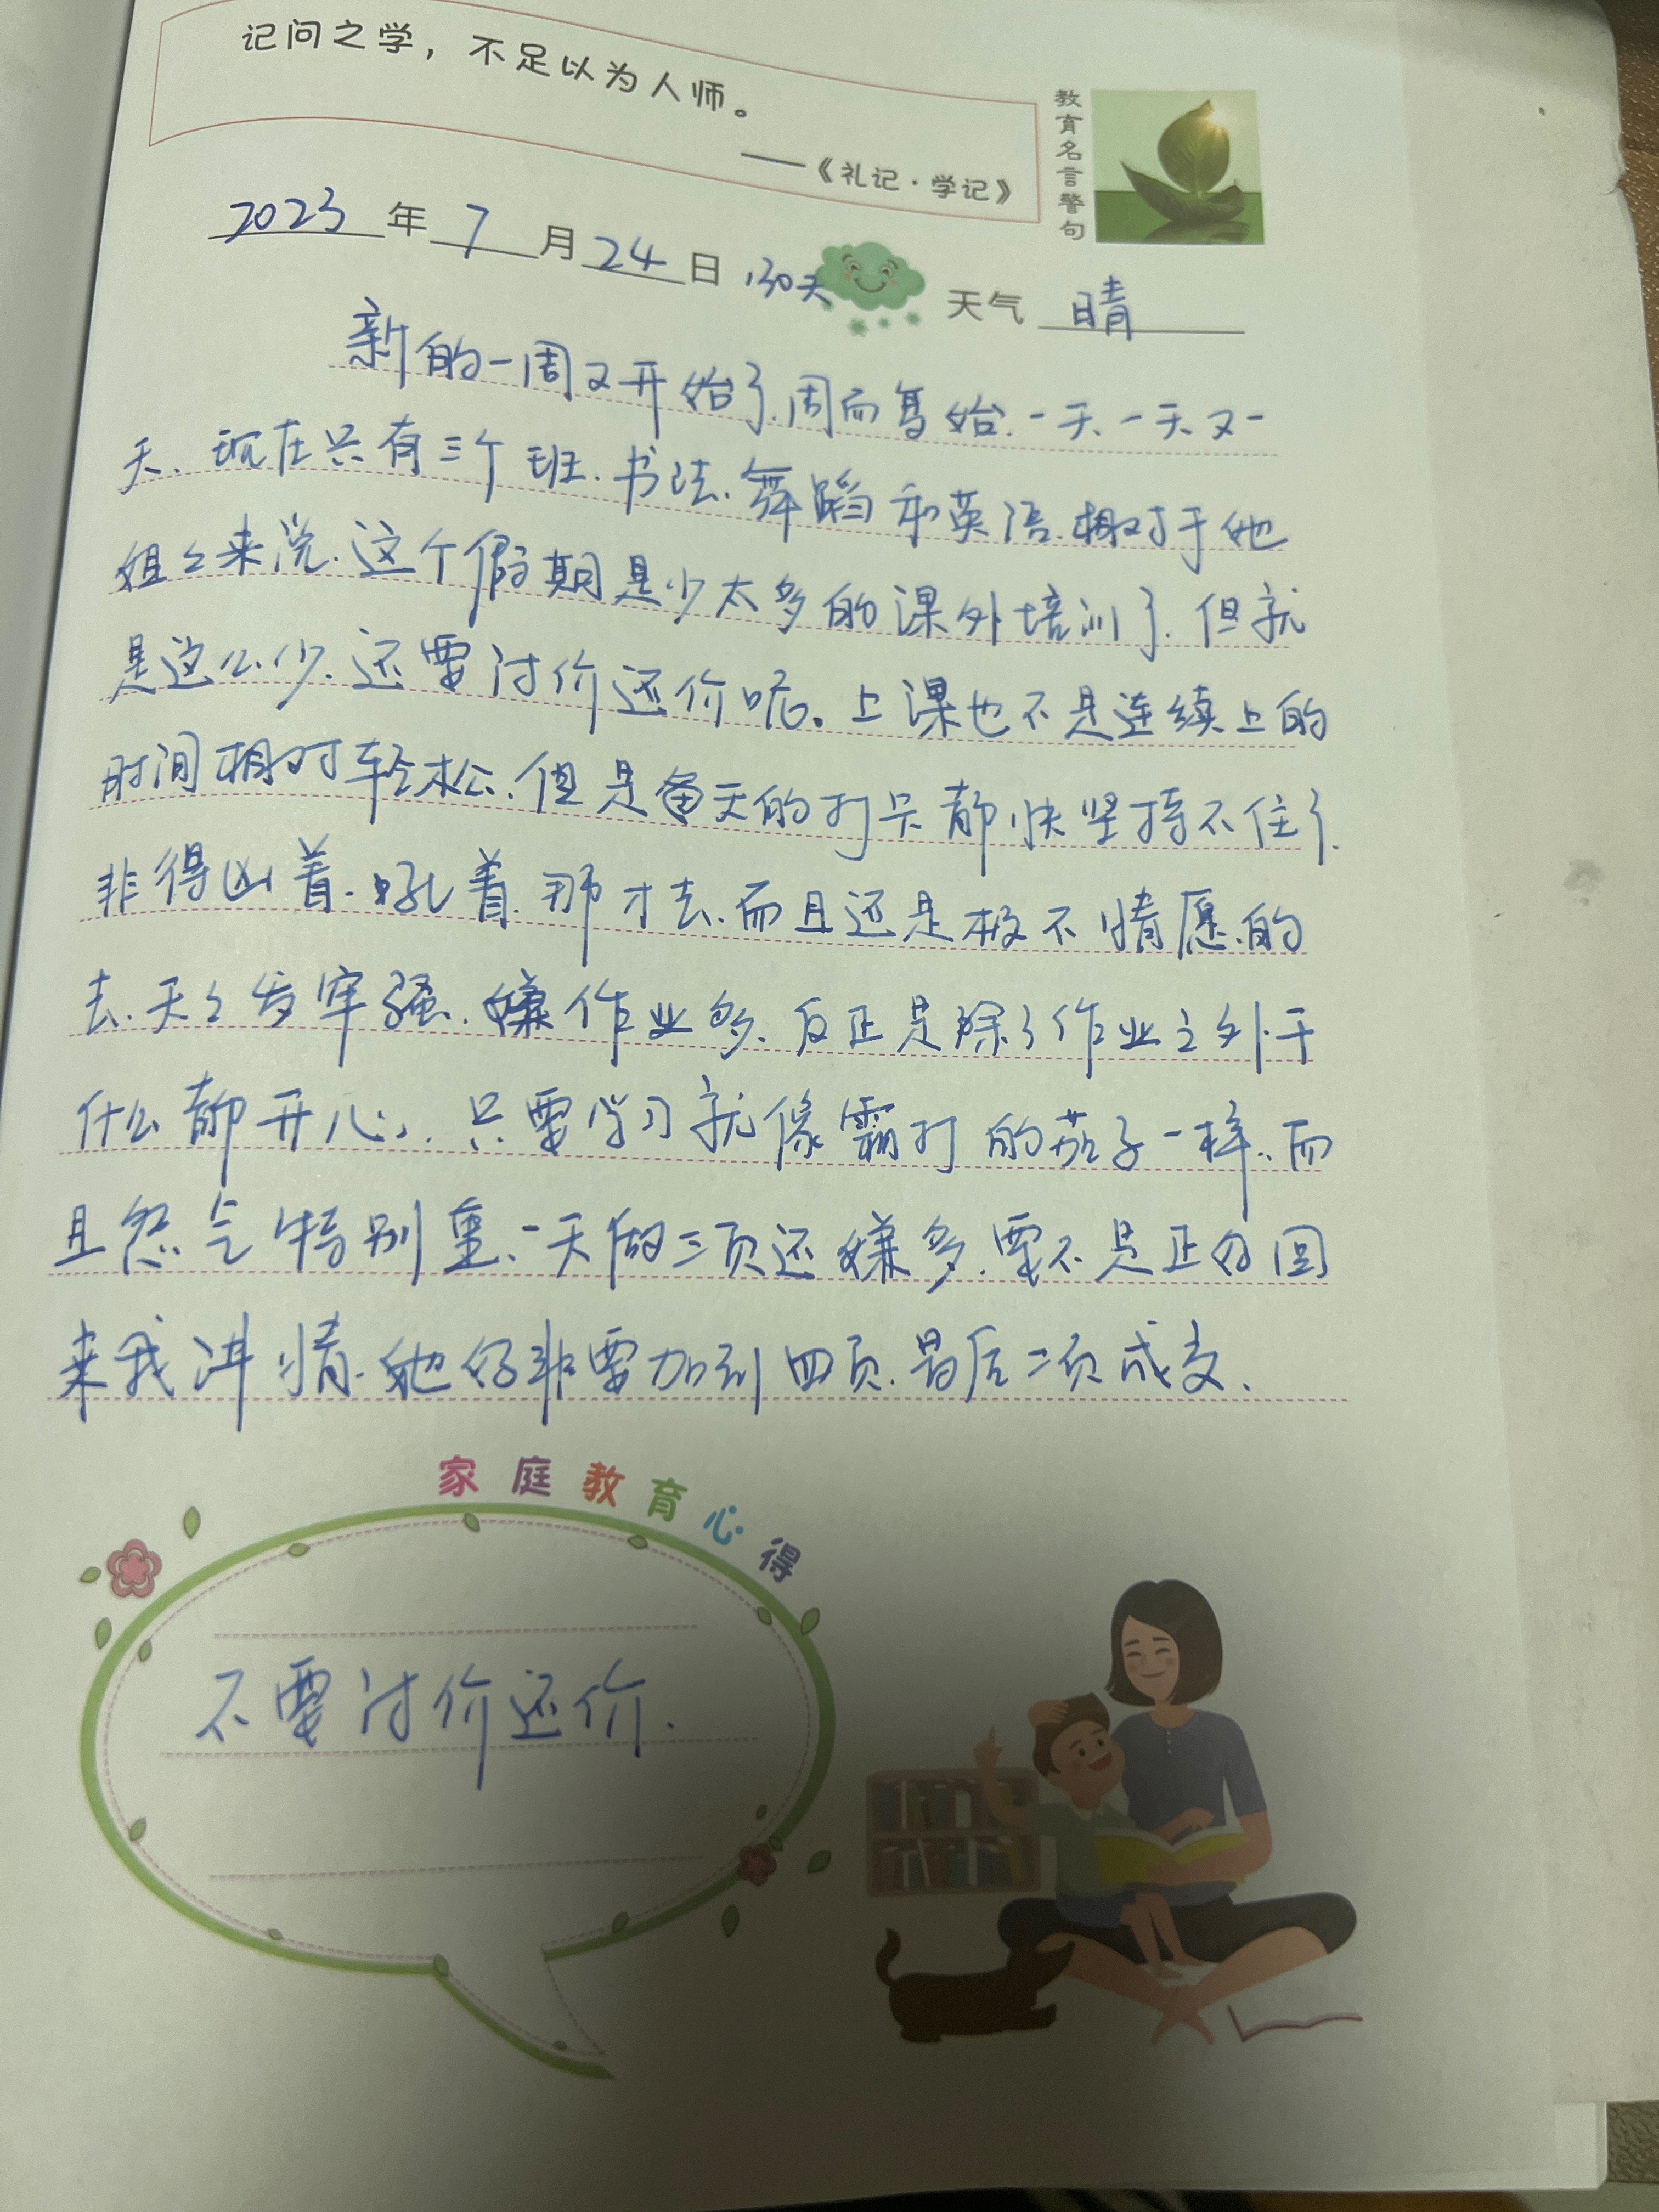 记问之学，不足以为人师。
——《礼记·学记》
教育名言警句
2023年7月24日 130天 天气 晴
新的一周又开始了.周而复始.一天.一天又一
天.现在只有三个班.书法.舞蹈和英语.相对于她
姐々来说.这个假期是少太多的课外培训了.但就
是这么少.还要讨价还价呢。上课也不是连续上的
时间相对轻松.但是每天的打卡都快坚持不住了.
非得凶着.吼着.那才去.而且还是极不情愿的
去.天々发牢骚.嫌作业多.反正是除了作业之外干
什么都开心.只要学习就像霜打的茄子一样.而
且怨气特别重.一天做三页还嫌多.要不是正好回
来我讲情.她爸非要加到四页.最后二页成交.
家庭教育心得
不要讨价还价.